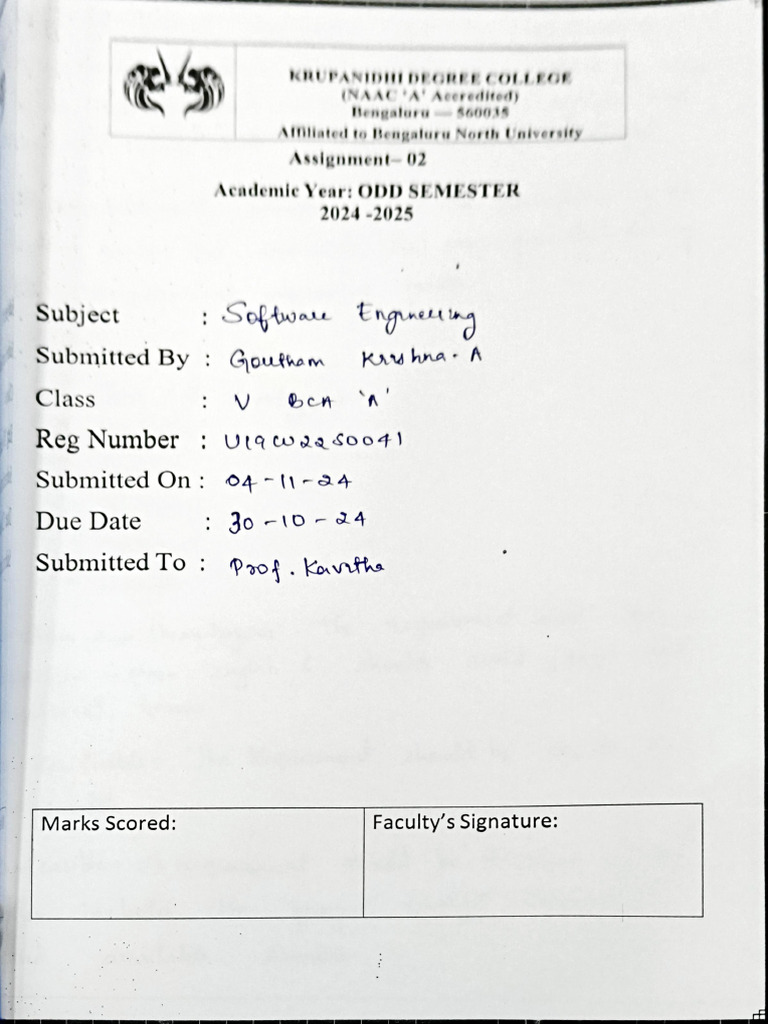 KRUPANIDHI DEGREE COLLEGE
(NAAC 'A' Accredited)
Bengaluru — 560035
Affiliated to Bengaluru North University
Assignment– 02
Academic Year: ODD SEMESTER
2024 -2025
Subject : Software Engineering
Submitted By : Goutham Krishna. A
Class : V BCA 'A'
Reg Number : U19CW22S0041
Submitted On : 04-11-24
Due Date : 30-10-24
Submitted To : Prof. Kavitha
Marks Scored:
Faculty's Signature: